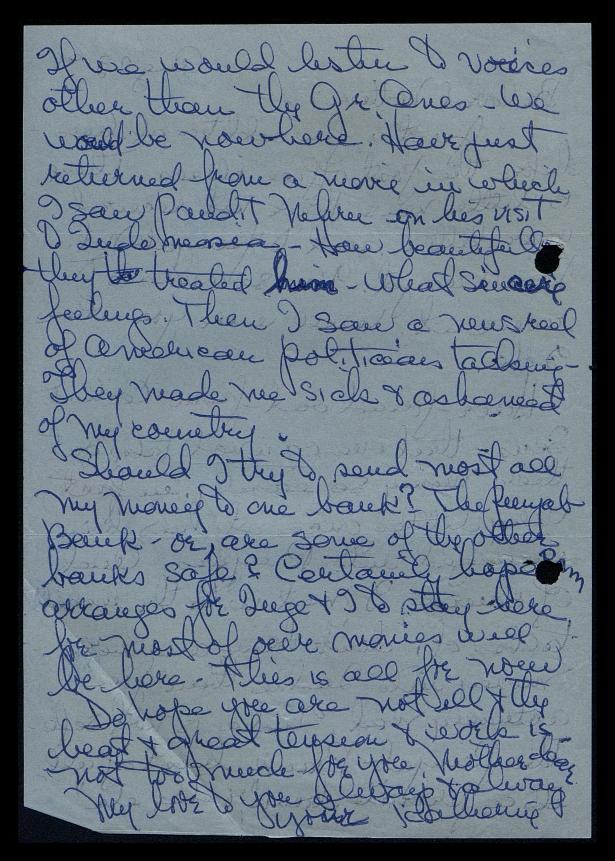 If we would listen to voices
other than thy Gr. Ones - We
would be nowhere. Have just
returned from a movie in which
I saw Pandit Nehru on his visit
to Indo nesia - How beautifull
they treated him - What sincere
feelings. Then I saw a newsreel
of American politicians talking -
They made me sick & ashamed
of my country.
Should I try to send most all
my money to one bank? The Punjab
Bank - or, are some of the other
banks safe? Certainly hope
arranges for Inge & I to stay here,
for most of our monies will
be here. This is all for now
Do hope you are not ill & the
heat & great tension & work is
not too much for you Mother dear.
My love to you always & always
your Katherine